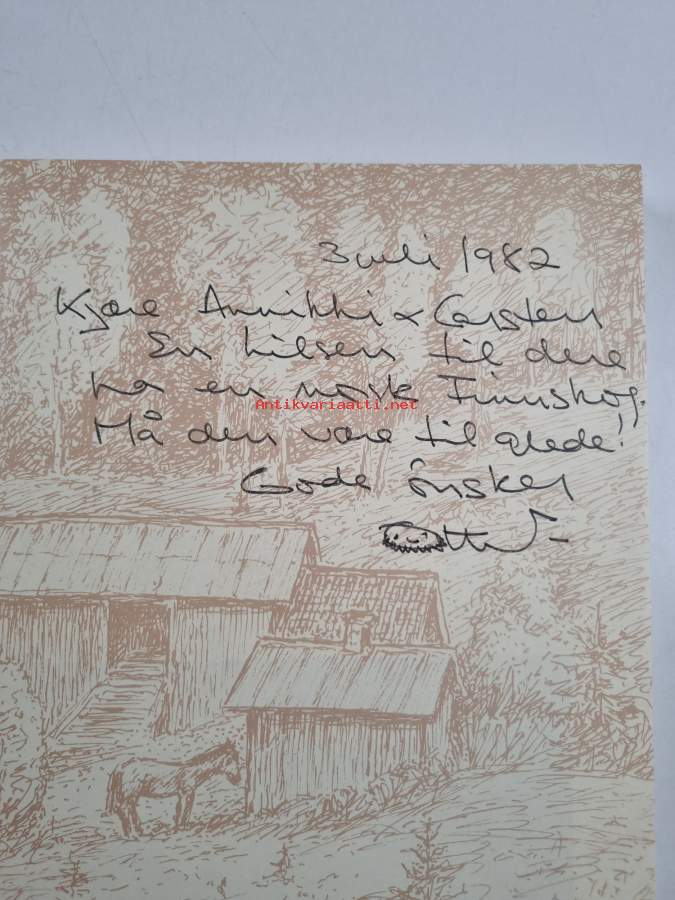 3 juli 1982
Kjære Annikki & Carsten
En hilsen til dere
fra en norsk Finnskog.
Antikvariaatti.net
Må den være til glede!
Gode ønsker